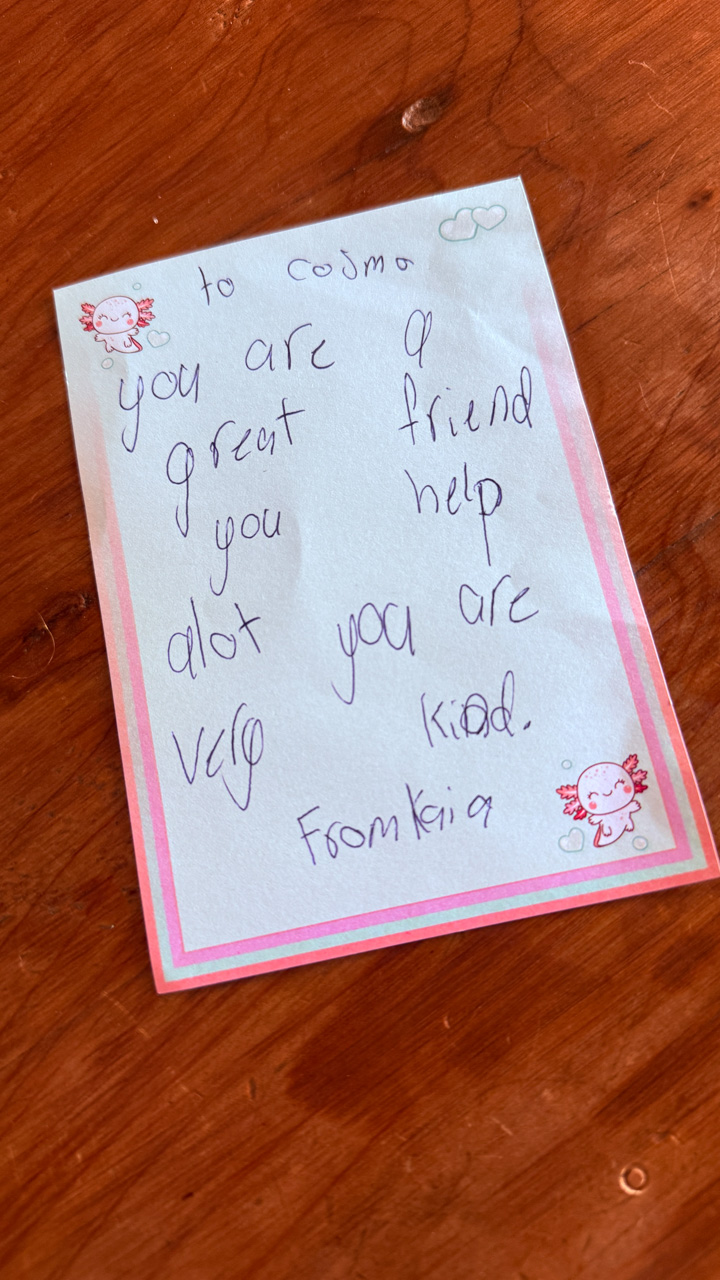 to cosmo
you are a
great friend
you help
alot you are
very kind.
From Kaia